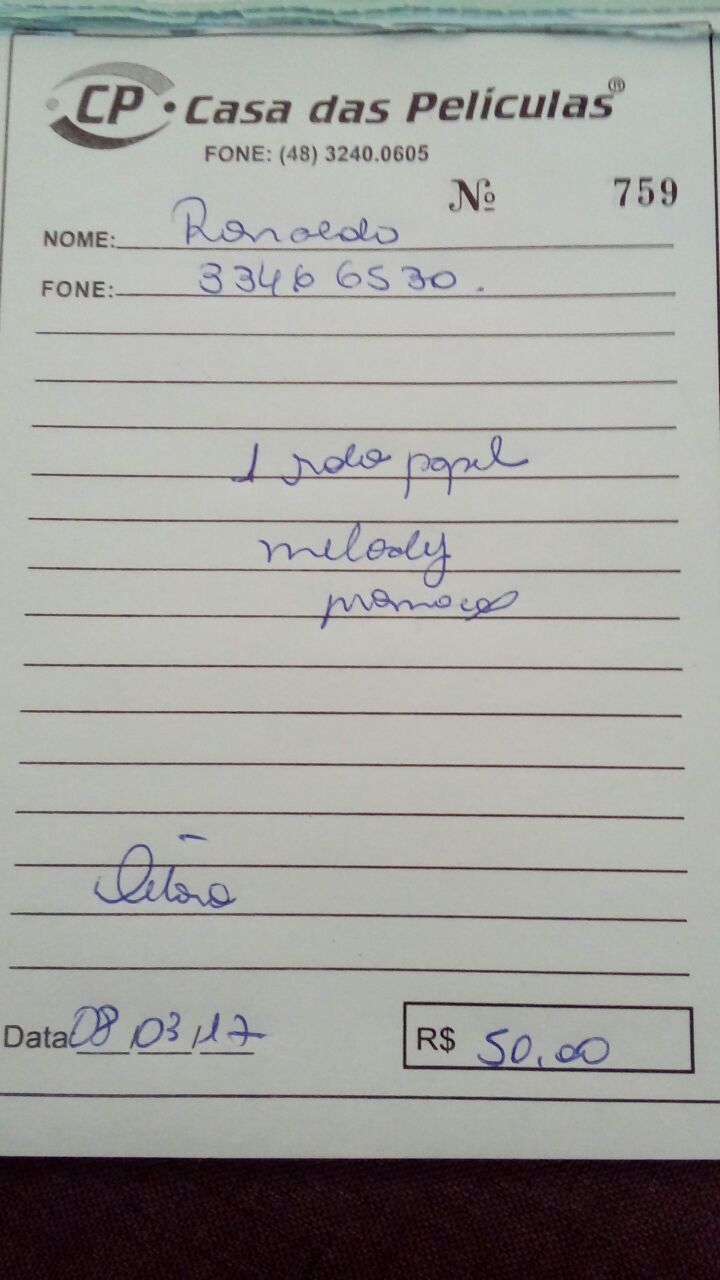 CP • Casa das Películas®
FONE: (48) 3240.0605
Nº 759
NOME: Ronaldo
FONE: 3346 6530.
1 rolo papel
melody
promoção
Data 08/03/17
R$ 50,00